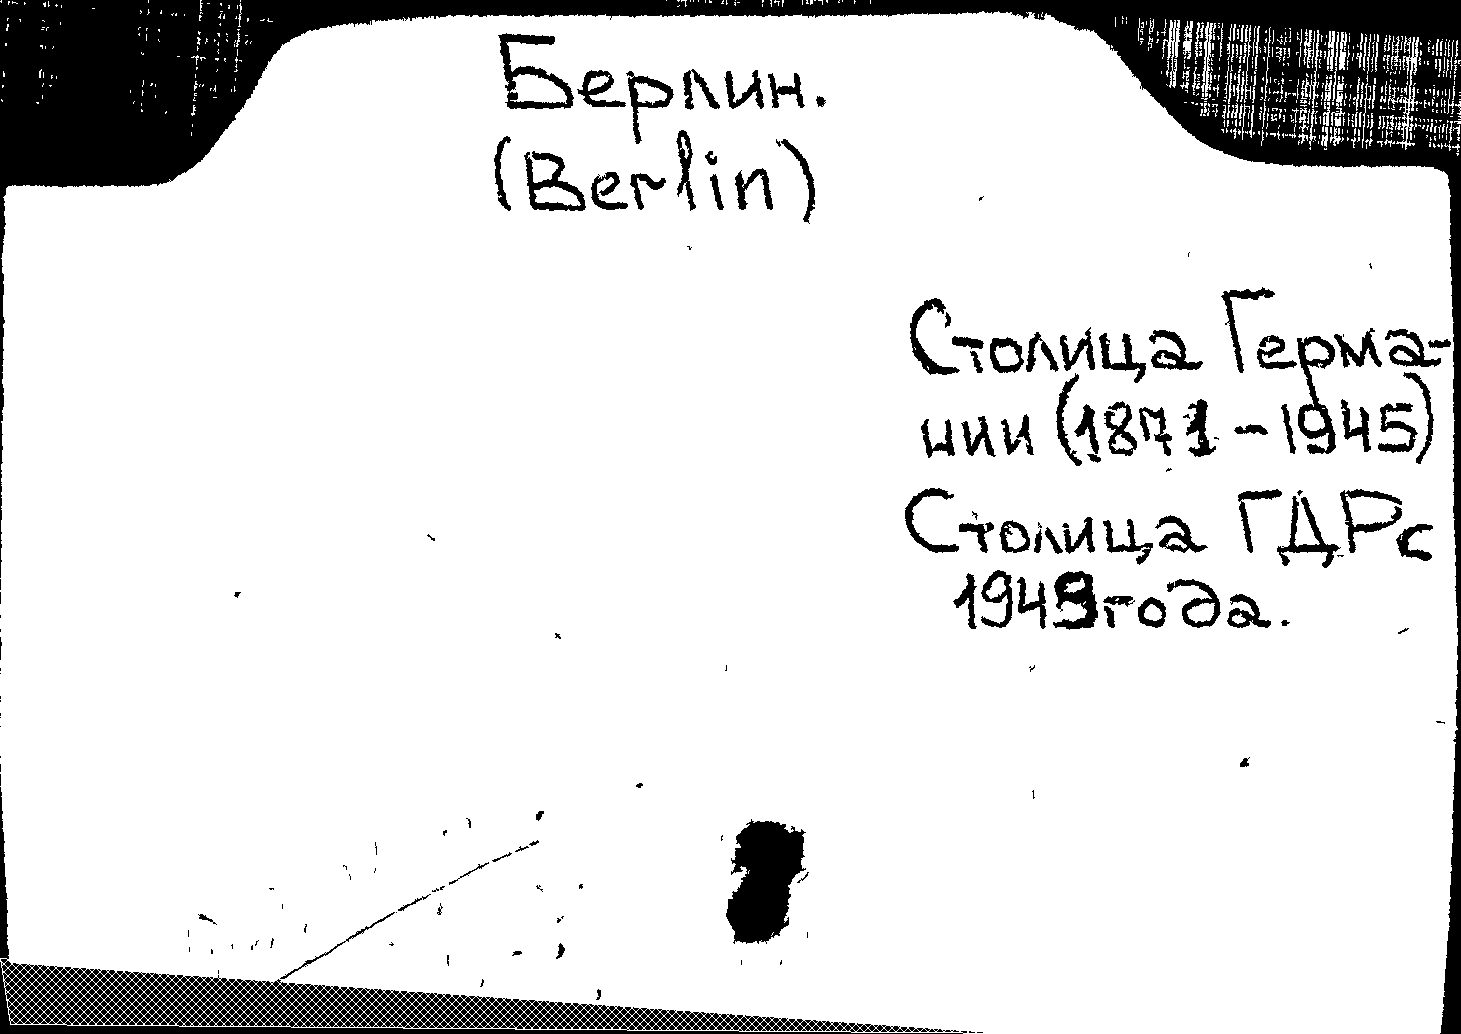 Берлин.
(Berlin)
Столица Герма-
нии (1871-1945)
Столица ГДР с
1949 года.